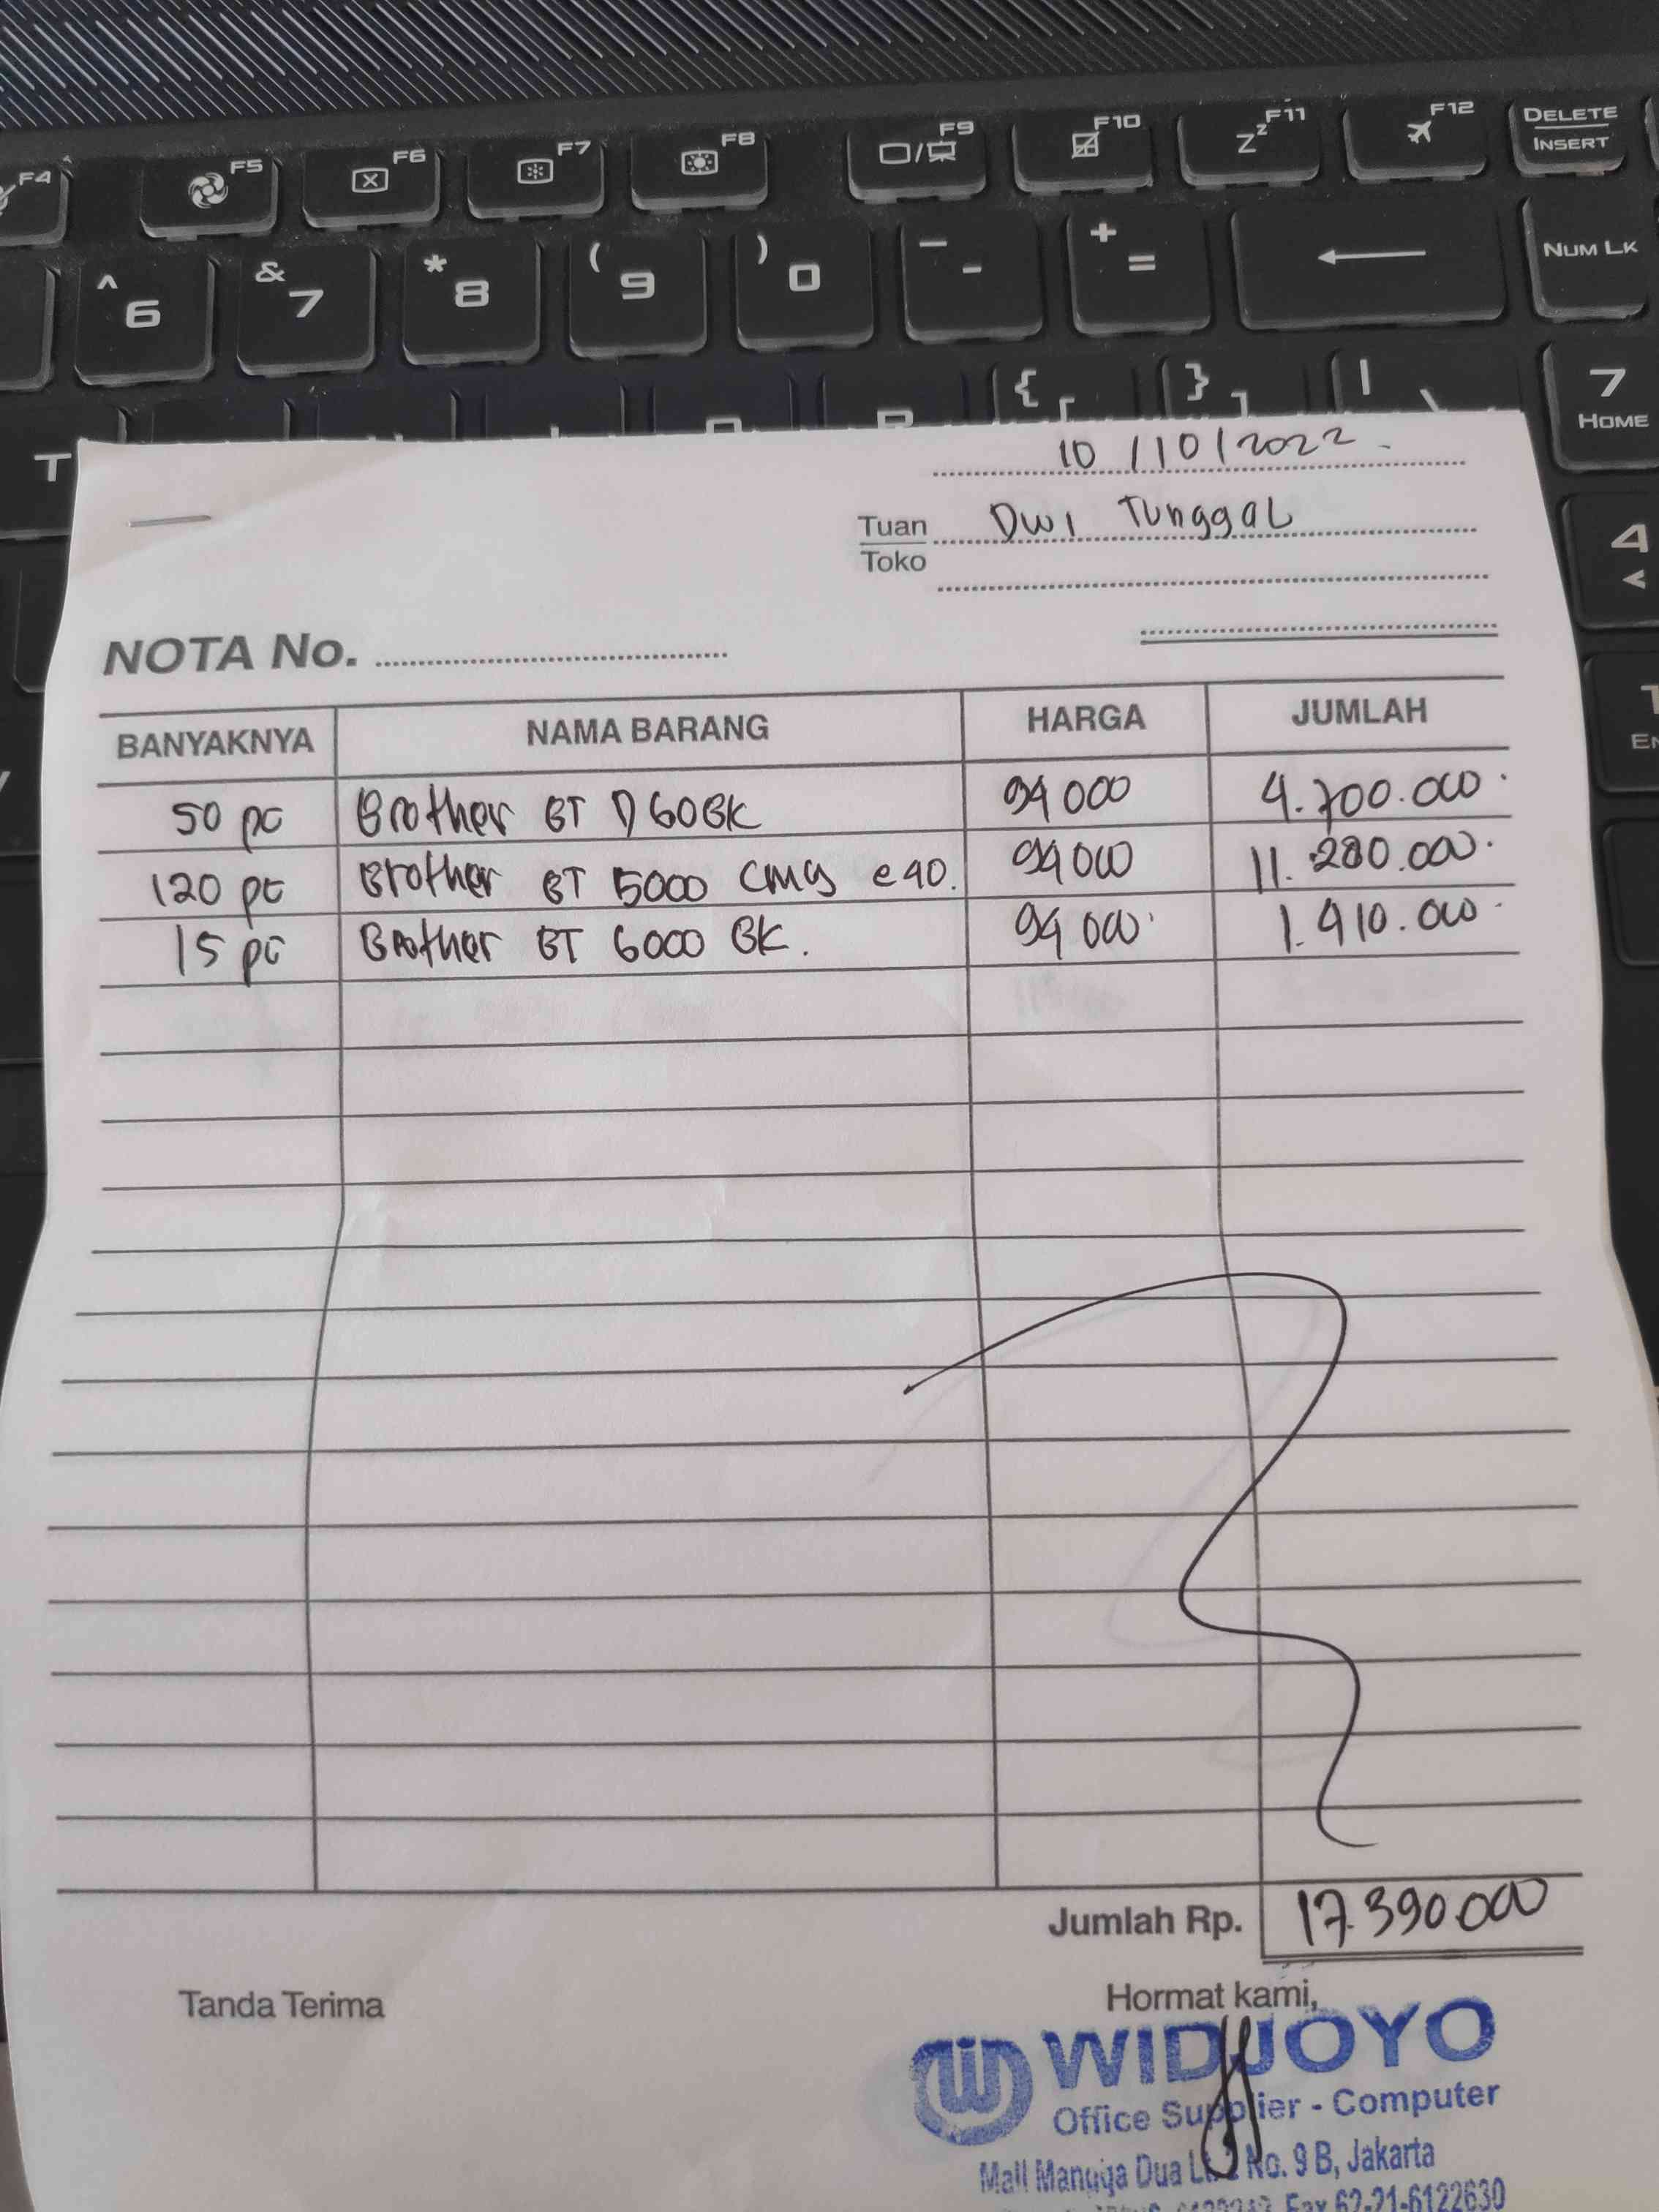 F4 F5 F6 F7 F8 F9 F10 F11 F12 DELETE INSERT
^ 6 & 7 * 8 ( 9 ) 0 _ - + = NUM LK
{ [ } ] | \ 7 HOME
T
4
10/10/2022
Tuan Dwi Tunggal
Toko
NOTA No.
BANYAKNYA NAMA BARANG HARGA JUMLAH
50 pc Brother BT D60BK 94 000 4.700.000
120 pc Brother BT 5000 CMY e40. 94 000 11.280.000
15 pc Brother BT 6000 BK. 94 000 1.410.000
Jumlah Rp. 17.390.000
Tanda Terima Hormat kami,
WIDJOYO
Office Supplier - Computer
Mall Mangga Dua Lt. 2 No. 9 B, Jakarta
Fax 62-21-6122630